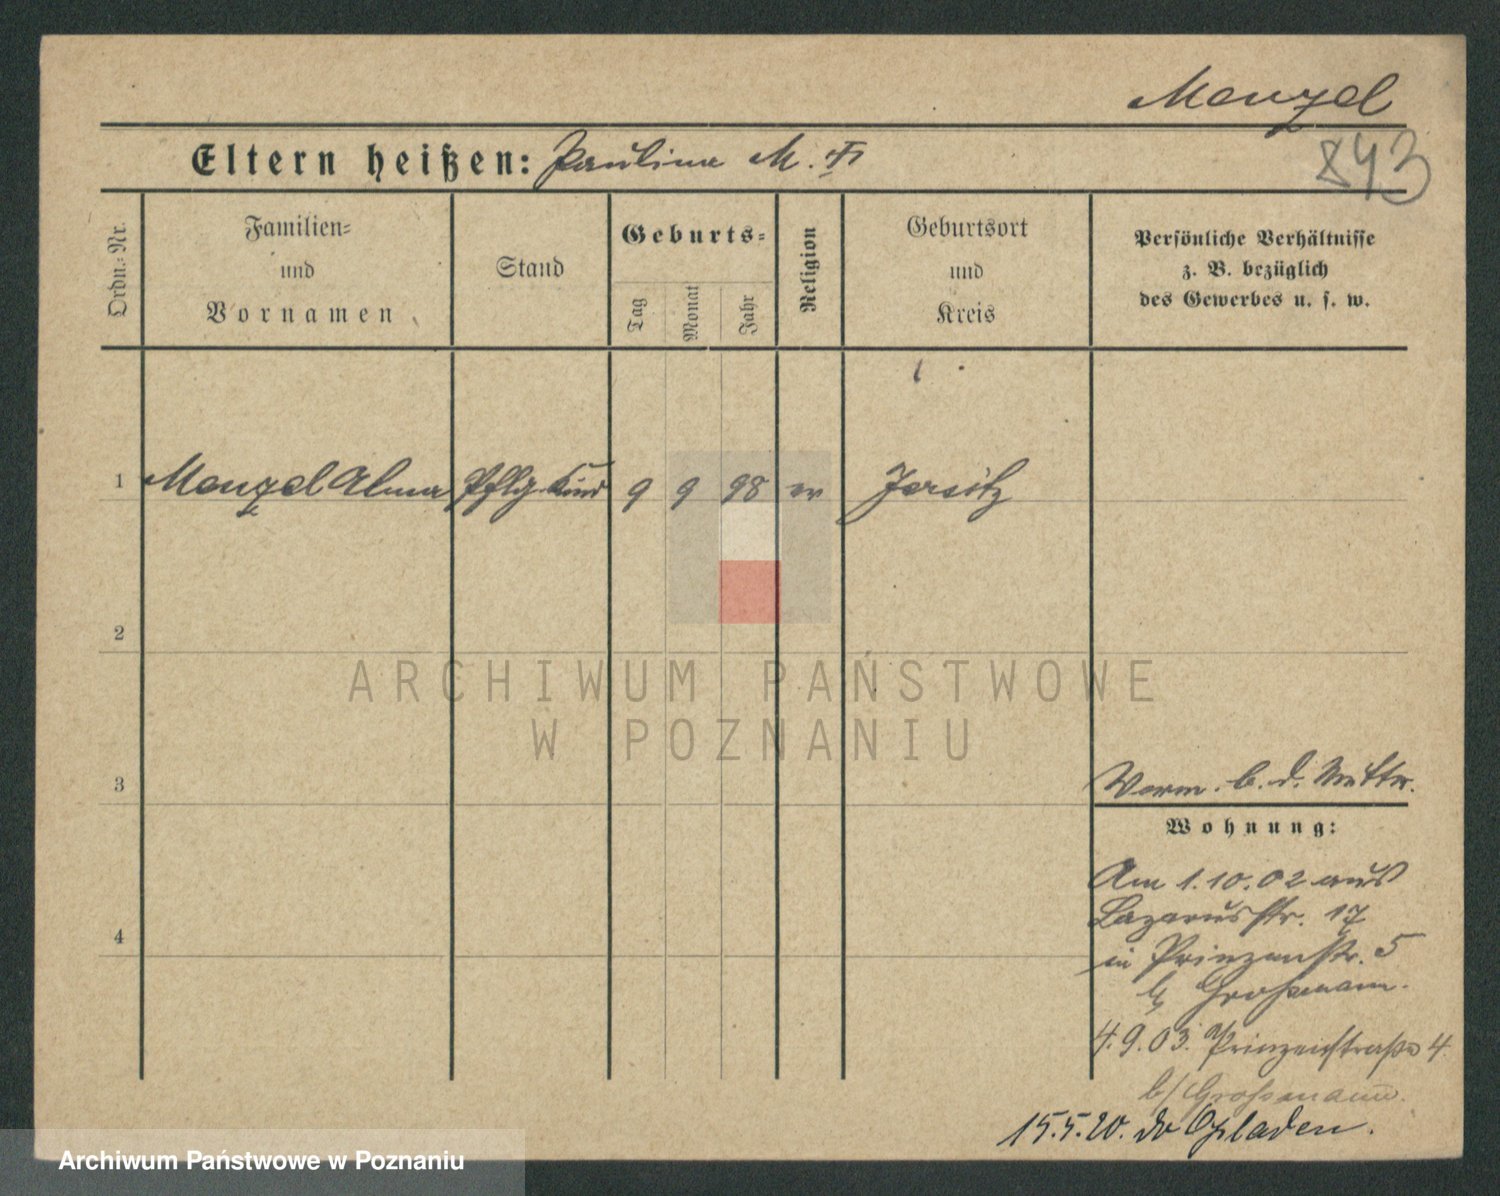 Menzel
843
Eltern heißen: Pauline M.
Ordn.-Nr.
Familien-
und
Vornamen
Stand
Geburts-
Tag
Monat
Jahr
Religion
Geburtsort
und
Kreis
Persönliche Verhältnisse
z. B. bezüglich
des Gewerbes u. s. w.
1 Menzel Alma Pflg. Kind 9 9 98 ev Jersitz
2
ARCHIWUM PAŃSTWOWE
W POZNANIU
3
Vorm. b. d. Mutter.
Wohnung:
Am 1.10.02 aus
Lazarusstr. 17
4
in Prinzenstr. 5
b/ Großmann.
4.9.03. Prinzenstraße 4
b/ Großmann.
15.5.20. Opladen.
Archiwum Państwowe w Poznaniu